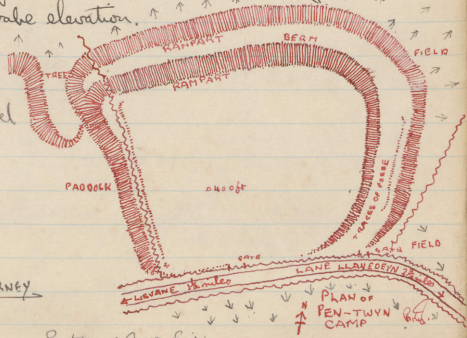 vabe elevation.
RAMPART
BERM
FIELD
TREE
RAMPART
PADDOCK
0400ft
TRACES OF FOSSE
GATE
GATE
FIELD
LANE LLANEDEYN
LISVANE 1½ miles
N
PLAN OF
PEN-TWYN
CAMP